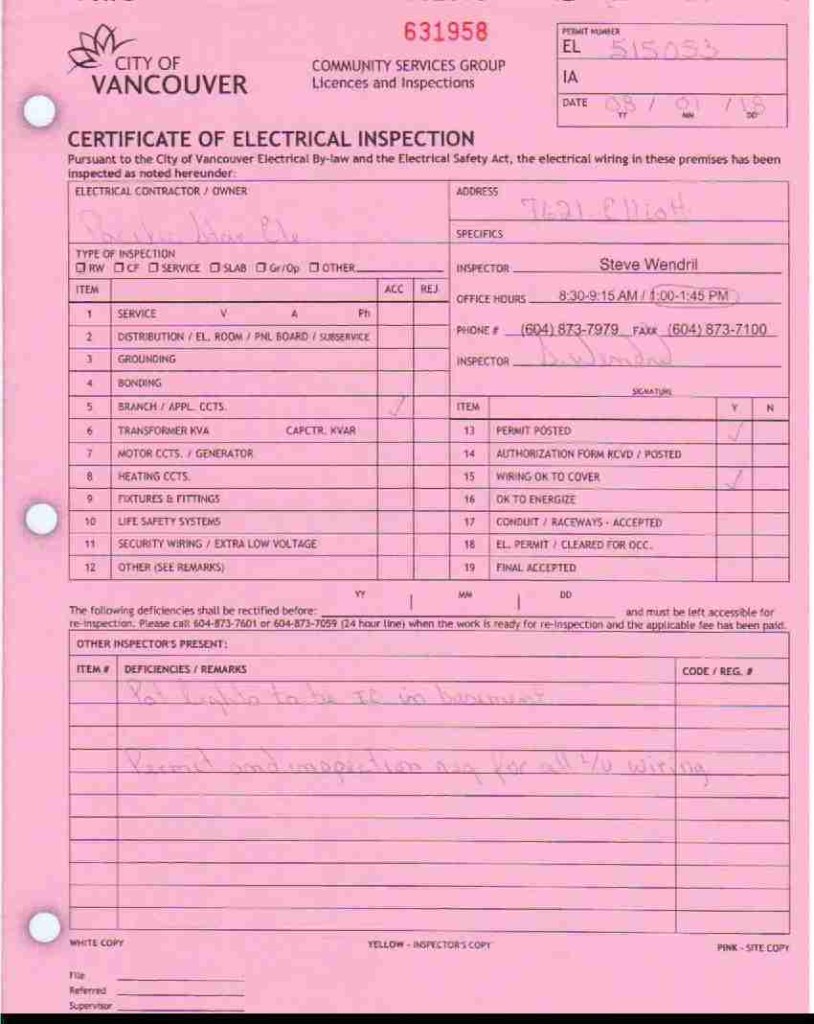 631958
CITY OF
VANCOUVER
COMMUNITY SERVICES GROUP
Licences and Inspections
PERMIT NUMBER
EL 515053
IA
DATE 08 / 01 / 18
YY MM DD
CERTIFICATE OF ELECTRICAL INSPECTION
Pursuant to the City of Vancouver Electrical By-law and the Electrical Safety Act, the electrical wiring in these premises has been
inspected as noted hereunder:
ELECTRICAL CONTRACTOR / OWNER
Pacific Star Ele.
ADDRESS
7621 Elliott
SPECIFICS
TYPE OF INSPECTION
RW CF SERVICE SLAB Gr/Op OTHER
INSPECTOR Steve Wendril
OFFICE HOURS 8:30-9:15 AM / 1:00-1:45 PM
PHONE # (604) 873-7979 FAX# (604) 873-7100
INSPECTOR S. Wendril
SIGNATURE
ITEM ACC REJ
1 SERVICE V A Ph
2 DISTRIBUTION / EL. ROOM / PNL BOARD / SUBSERVICE
3 GROUNDING
4 BONDING
5 BRANCH / APPL. CCTS. ✓
6 TRANSFORMER KVA CAPCTR. KVAR
7 MOTOR CCTS. / GENERATOR
8 HEATING CCTS.
9 FIXTURES & FITTINGS
10 LIFE SAFETY SYSTEMS
11 SECURITY WIRING / EXTRA LOW VOLTAGE
12 OTHER (SEE REMARKS)
ITEM Y N
13 PERMIT POSTED ✓
14 AUTHORIZATION FORM RCVD / POSTED
15 WIRING OK TO COVER ✓
16 OK TO ENERGIZE
17 CONDUIT / RACEWAYS - ACCEPTED
18 EL. PERMIT / CLEARED FOR OCC.
19 FINAL ACCEPTED
YY MM DD
The following deficiencies shall be rectified before: and must be left accessible for
re-inspection. Please call 604-873-7601 or 604-873-7059 (24 hour line) when the work is ready for re-inspection and the applicable fee has been paid.
OTHER INSPECTOR'S PRESENT:
ITEM # DEFICIENCIES / REMARKS CODE / REG. #
Pot Lights to be IC in basement
Permit and inspection req for all L/V wiring
WHITE COPY YELLOW - INSPECTOR'S COPY PINK - SITE COPY
File
Referred
Supervisor